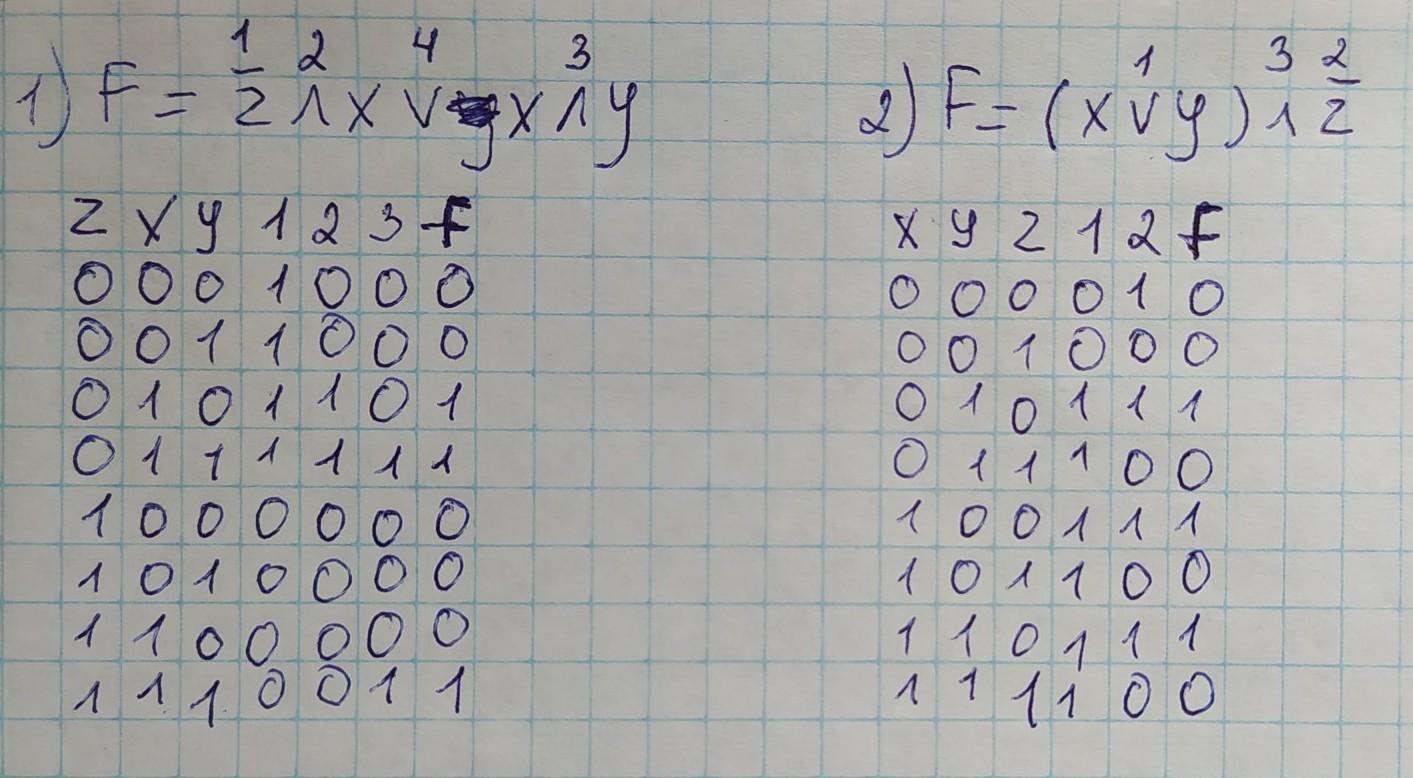 1 2 4 3
1) F = z̅ ∧ x ∨ x ∧ y
z x y 1 2 3 F
0 0 0 1 0 0 0
0 0 1 1 0 0 0
0 1 0 1 1 0 1
0 1 1 1 1 1 1
1 0 0 0 0 0 0
1 0 1 0 0 0 0
1 1 0 0 0 0 0
1 1 1 0 0 1 1
1 3 2
2) F = (x ∨ y) ∧ z̅
x y z 1 2 F
0 0 0 0 1 0
0 0 1 0 0 0
0 1 0 1 1 1
0 1 1 1 0 0
1 0 0 1 1 1
1 0 1 1 0 0
1 1 0 1 1 1
1 1 1 1 0 0